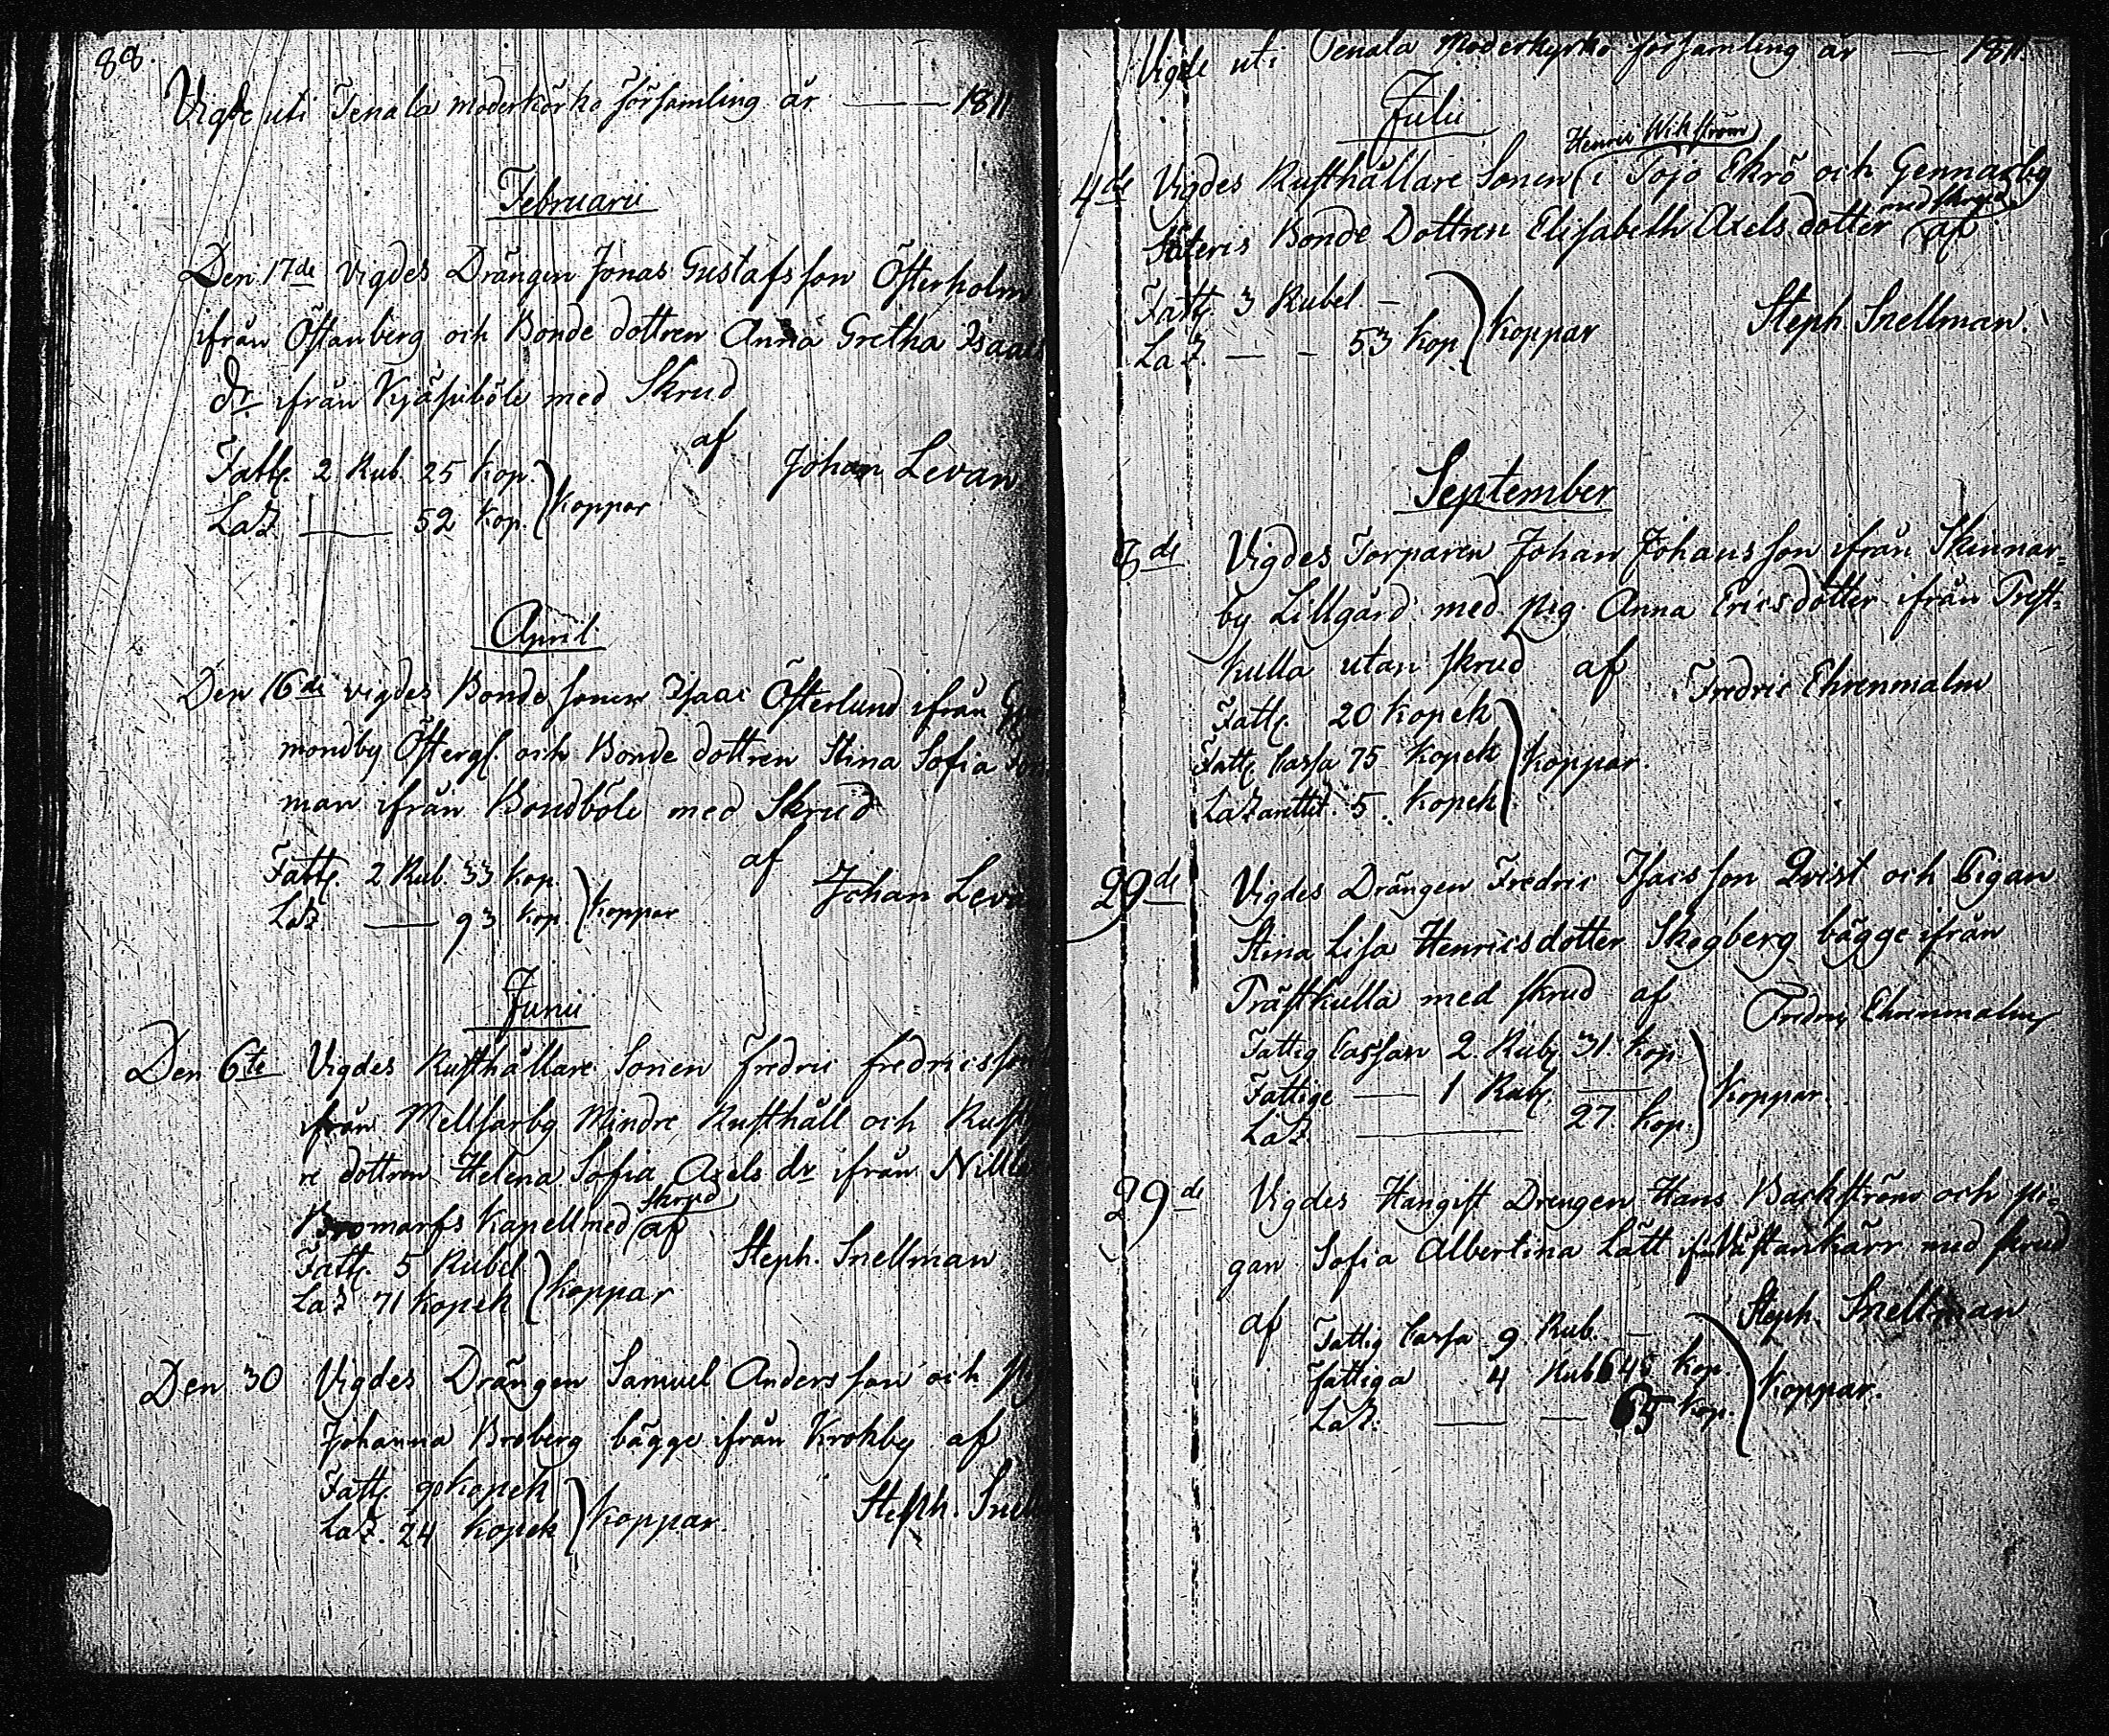 88.
Vigde uti Tenala moderkörko församling år —— 1811
Februarii
Den 17de Vigdes Drängen Jonas Gustafsson Österholm
ifrån Östanberg och Bonde dottren Anna Gretha Isaacs
dr ifrån Kjäsuböle med Skrud
af
Johan Levan
Fatt. 2 Rub. 25 Kop.
Laz. —— 52 Kop.
Koppar
April
Den 16de vigdes Bonde sonen Isaac Österlund ifrån
mondby Östergs. och Bonde dottren Stina Sofia
man ifrån Bondböle med Skrud
af
Johan Leva
Fatt. 2 Rub. 33 Kop.
Laz. —— 93 Kop.
Koppar
Junii
Den 6te Vigdes Rusthållare Sonen Fredric Fredricsson
ifrån Mellsarby Mindre Rusthåll och Rust
re dottren Helena Sofia Axels dr ifrån
Bromarfs Kapell med skrud af
Steph. Snellman
Fatt. 5 Rubel
Laz 71 Kopek
Koppar
Den 30 Vigdes Drängen Samuel Andersson och
Johanna Broberg bägge ifrån Krokby af
Steph. Snell
Fatt. 90 Kopek
Laz. 24 Kopek
Koppar
Vigde uti Tenala Moderkyrko församling år —— 1811.
Julii
Henric Wikström
4de Vigdes Rusthållare Sonen i Tojo Ekrö och Gennarby
med skrud
Säteris Bonde Dottren Elisabeth Axelsdotter af
Steph Snellman.
Fatt. 3 Rubel —
Laz. — — 53 Kop.
Koppar
September
8de Vigdes Torparen Johan Johansson ifrån Skinnar=
by Lillgård med pig. Anna Ericsdotter ifrån Prest=
kulla utan skrud af Fredric Ehrenmalm
Fatt. 20 Kopek
Fatt. Cassa 75 Kopek
Lazarettet. 5. Kopek
Koppar.
29de Vigdes Drängen Fredric Isacsson Qvist och Pigan
Stina Lisa Henricsdotter Skogberg bägge ifrån
Prästkulla med skrud af Fredric Ehrenmalm
Fattig Cassan 2. Rub. 31. Kop
Fattige — 1 Rub. —
Laz. —— 27 Kop.
Koppar.
29de Vigdes Hangist Drengen Hans Backström och pi=
gan Sofia Albertina Lätt ifrån Västankärr med skrud
af
Steph. Snellman
Fattig Cassa 9 Rub. —
Fattiga 4 Rub 46 Kop.
Laz. —— — 65 Kop.
Koppar.